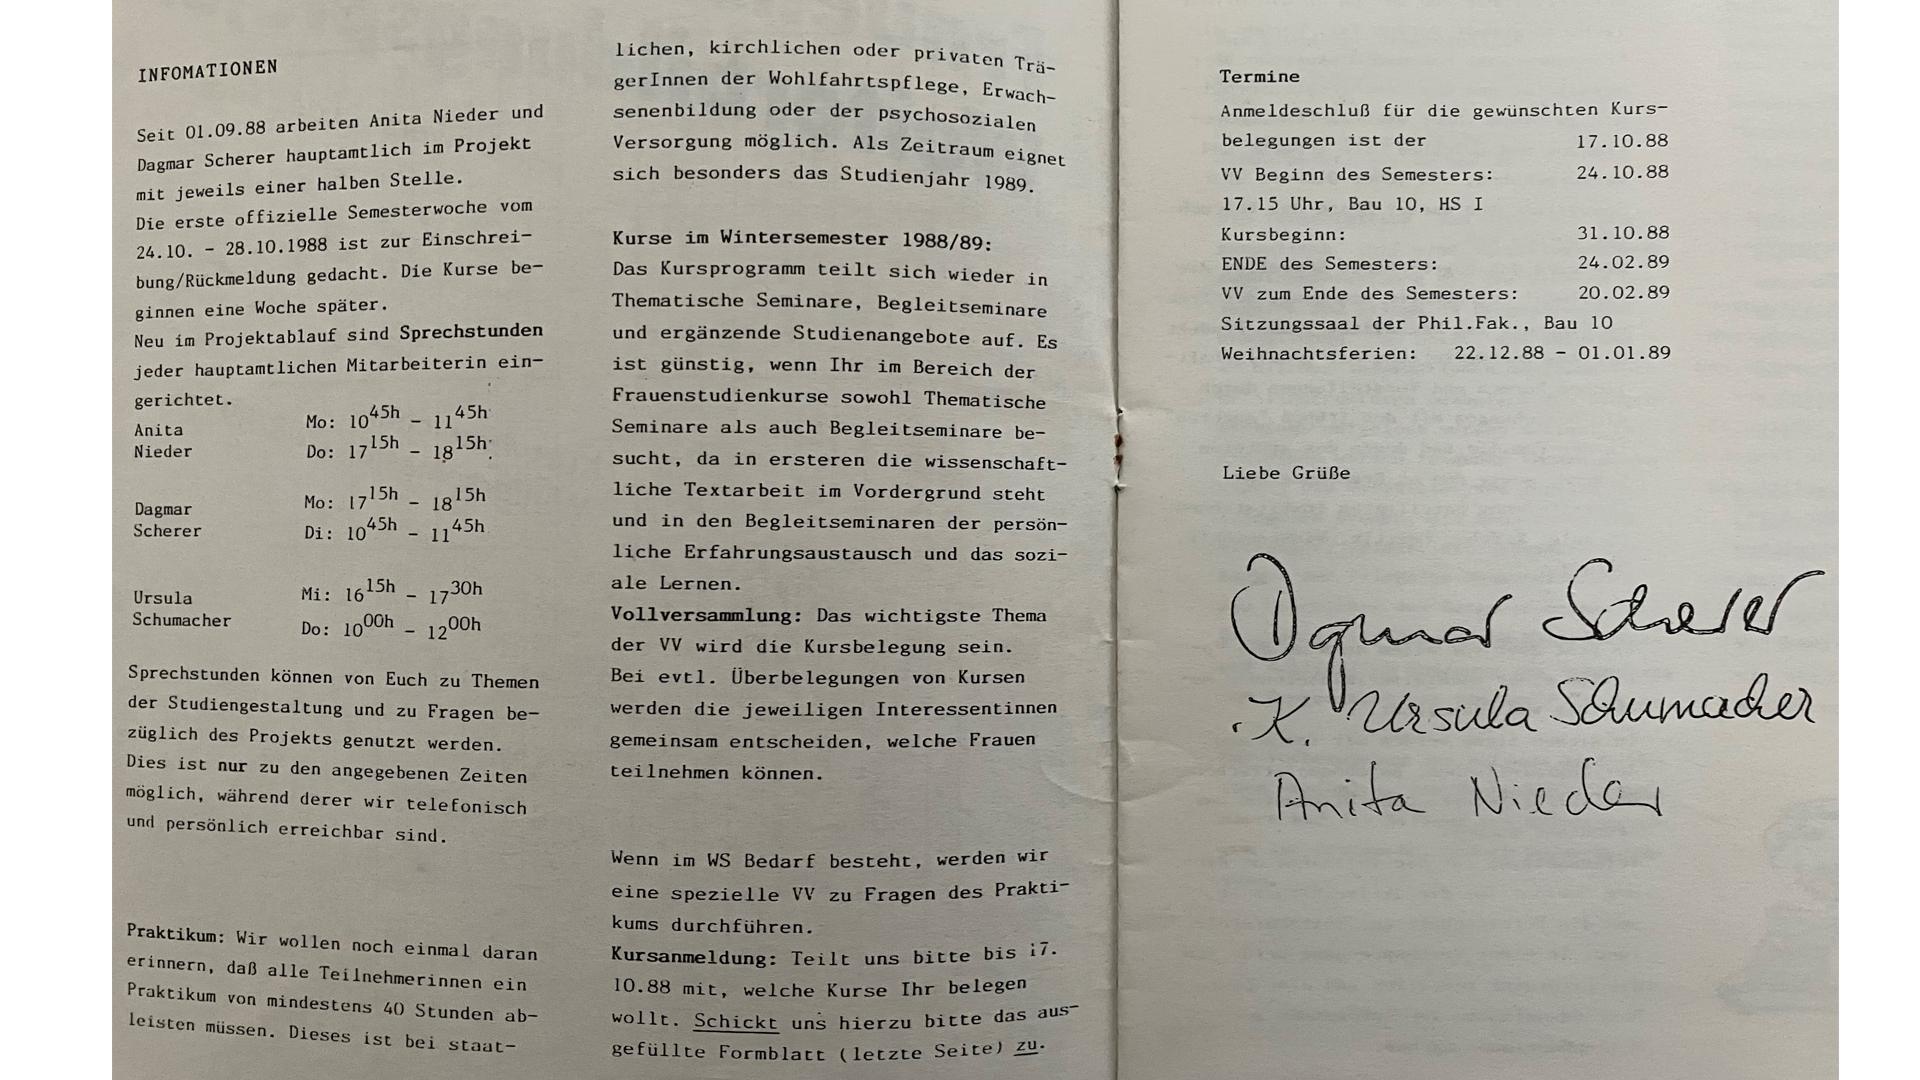 INFOMATIONEN
Seit 01.09.88 arbeiten Anita Nieder und
Dagmar Scherer hauptamtlich im Projekt
mit jeweils einer halben Stelle.
Die erste offizielle Semesterwoche vom
24.10. - 28.10.1988 ist zur Einschrei-
bung/Rückmeldung gedacht. Die Kurse be-
ginnen eine Woche später.
Neu im Projektablauf sind Sprechstunden
jeder hauptamtlichen Mitarbeiterin ein-
gerichtet.
Anita Mo: 10 45h - 11 45h
Nieder Do: 17 15h - 18 15h
Dagmar Mo: 17 15h - 18 15h
Scherer Di: 10 45h - 11 45h
Ursula Mi: 16 15h - 17 30h
Schumacher Do: 10 00h - 12 00h
Sprechstunden können von Euch zu Themen
der Studiengestaltung und zu Fragen be-
züglich des Projekts genutzt werden.
Dies ist nur zu den angegebenen Zeiten
möglich, während derer wir telefonisch
und persönlich erreichbar sind.
Praktikum: Wir wollen noch einmal daran
erinnern, daß alle Teilnehmerinnen ein
Praktikum von mindestens 40 Stunden ab-
leisten müssen. Dieses ist bei staat-
lichen, kirchlichen oder privaten Trä-
gerInnen der Wohlfahrtspflege, Erwach-
senenbildung oder der psychosozialen
Versorgung möglich. Als Zeitraum eignet
sich besonders das Studienjahr 1989.
Kurse im Wintersemester 1988/89:
Das Kursprogramm teilt sich wieder in
Thematische Seminare, Begleitseminare
und ergänzende Studienangebote auf. Es
ist günstig, wenn Ihr im Bereich der
Frauenstudienkurse sowohl Thematische
Seminare als auch Begleitseminare be-
sucht, da in ersteren die wissenschaft-
liche Textarbeit im Vordergrund steht
und in den Begleitseminaren der persön-
liche Erfahrungsaustausch und das sozi-
ale Lernen.
Vollversammlung: Das wichtigste Thema
der VV wird die Kursbelegung sein.
Bei evtl. Überbelegungen von Kursen
werden die jeweiligen Interessentinnen
gemeinsam entscheiden, welche Frauen
teilnehmen können.
Wenn im WS Bedarf besteht, werden wir
eine spezielle VV zu Fragen des Prakti-
kums durchführen.
Kursanmeldung: Teilt uns bitte bis 17.
10.88 mit, welche Kurse Ihr belegen
wollt. Schickt uns hierzu bitte das aus-
gefüllte Formblatt (letzte Seite) zu.
Termine
Anmeldeschluß für die gewünschten Kurs-
belegungen ist der 17.10.88
VV Beginn des Semesters: 24.10.88
17.15 Uhr, Bau 10, HS I
Kursbeginn: 31.10.88
ENDE des Semesters: 24.02.89
VV zum Ende des Semesters: 20.02.89
Sitzungssaal der Phil.Fak., Bau 10
Weihnachtsferien: 22.12.88 - 01.01.89
Liebe Grüße
Dagmar Scherer
K. Ursula Schumacher
Anita Nieder